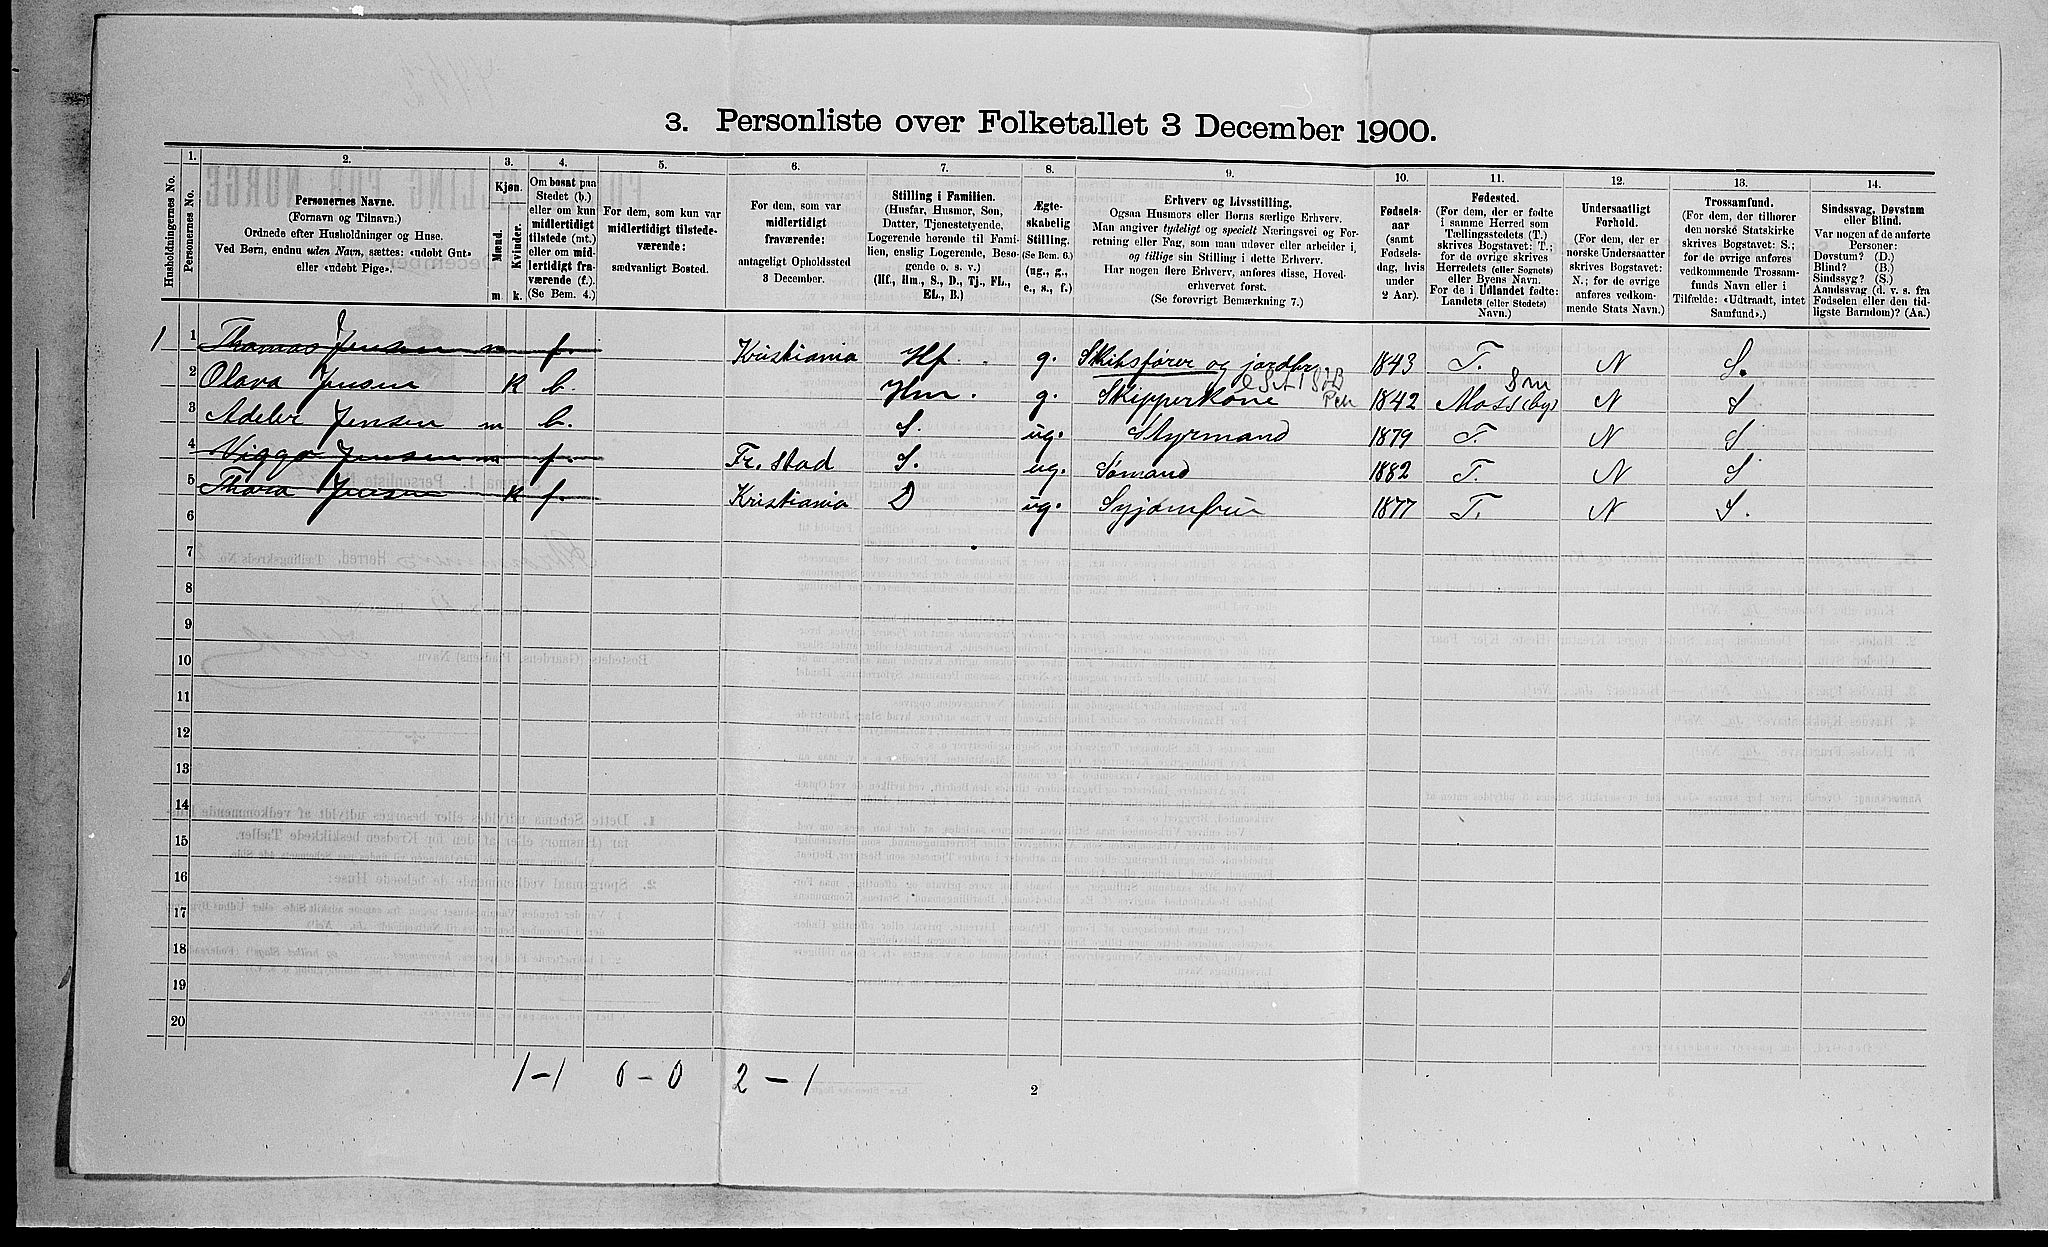 3. Personliste over Folketallet 3 December 1900.
1. 2. 3. 4. 5. 6. 7. 8. 9. 10. 11. 12. 13. 14.
Husholdningernes No.
Personernes No.
Personernes Navne.
(Fornavn og Tilnavn.)
Ordnede efter Husholdninger og Huse.
Ved Børn, endnu uden Navn, sættes: «udøbt Gut»
eller «udøbt Pige».
Kjøn.
Mænd.
Kvinder.
m. k.
Om bosat paa
Stedet (b.)
eller om kun
midlertidigt
tilstede (mt.)
eller om mid-
lertidigt fra-
værende (f.).
(Se Bem. 4.)
For dem, som kun var
midlertidigt tilstede-
værende:
sædvanligt Bosted.
For dem, som var
midlertidigt
fraværende:
antageligt Opholdssted
3 December.
Stilling i Familien.
(Husfar, Husmor, Søn,
Datter, Tjenestetyende,
Logerende hørende til Fami-
lien, enslig Logerende, Besø-
gende o. s. v.)
(Hf., Hm., S., D., Tj., FL.,
EL., B.)
Ægte-
skabelig
Stilling.
(Se Bem. 6.)
(ug., g.,
e., s., f.)
Erhverv og Livsstilling.
Ogsaa Husmors eller Børns særlige Erhverv.
Man angiver tydeligt og specielt Næringsvei og For-
retning eller Fag, som man udøver eller arbeider i,
og tillige sin Stilling i dette Erhverv.
Har nogen flere Erhverv, anføres disse, Hoved-
erhvervet først.
(Se forøvrigt Bemærkning 7.)
Fødsels-
aar
(samt
Fødsels-
dag, hvis
under
2 Aar).
Fødested.
(For dem, der er fødte
i samme Herred som
Tællingsstedets (T.)
skrives Bogstavet: T.;
for de øvrige skrives
Herredets (eller Sognets)
eller Byens Navn.
For de i Udlandet fødte:
Landets (eller Stedets)
Navn.)
Undersaatligt
Forhold.
(For dem, der er
norske Undersaatter
skrives Bogstavet:
N.; for de øvrige
anføres vedkom-
mende Stats Navn.)
Trossamfund.
(For dem, der tilhører
den norske Statskirke
skrives Bogstavet: S.;
for de øvrige anføres
vedkommende Trossam-
funds Navn eller i
Tilfælde: «Udtraadt, intet
Samfund».)
Sindssvag, Døvstum
eller Blind.
Var nogen af de anførte
Personer:
Døvstum? (D.)
Blind? (B.)
Sindssyg? (S.)
Aandssvag (d. v. s. fra
Fødselen eller den tid-
ligste Barndom)? (Aa.)
1 1 Thomas Jensen m f. Kristiania Hf. g. Skibsfører og jordbr 1843 T. N S.
8 m
2 Olava Jensen K b. Hm. g. Skipperkone 1842 Moss (by) N S
3 Adeler Jensen m b. S. ug. Styrmand 1879 T. N S
4 Viggo Jensen m f. Fr. stad S. ug. Sømand 1882 T. N S
5 Thora Jensen K f. Kristiania D ug. Syjomfru 1877 T. N S.
6
7
8
9
10
11
12
13
14
15
16
17
18
19
20
1-1 0-0 2-1
2